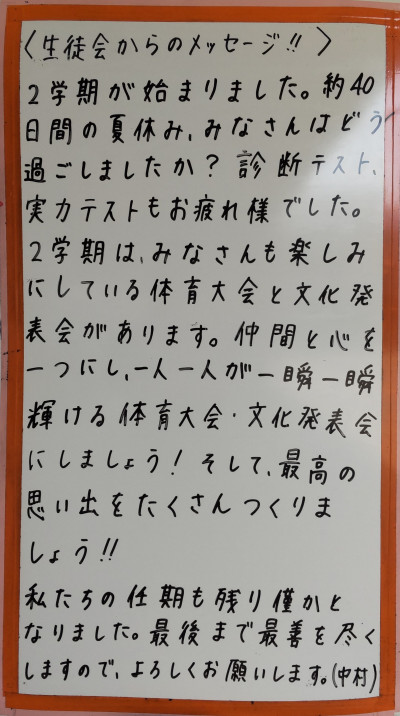 〈生徒会からのメッセージ!!〉
2学期が始まりました。約40
日間の夏休み、みなさんはどう
過ごしましたか？診断テスト、
実力テストもお疲れ様でした。
2学期は、みなさんも楽しみ
にしている体育大会と文化発
表会があります。仲間と心を
一つにし、一人一人が一瞬一瞬
輝ける体育大会・文化発表会
にしましょう！そして、最高の
思い出をたくさんつくりま
しょう!!
私たちの任期も残り僅かと
なりました。最後まで最善を尽く
しますので、よろしくお願いします。(中村)